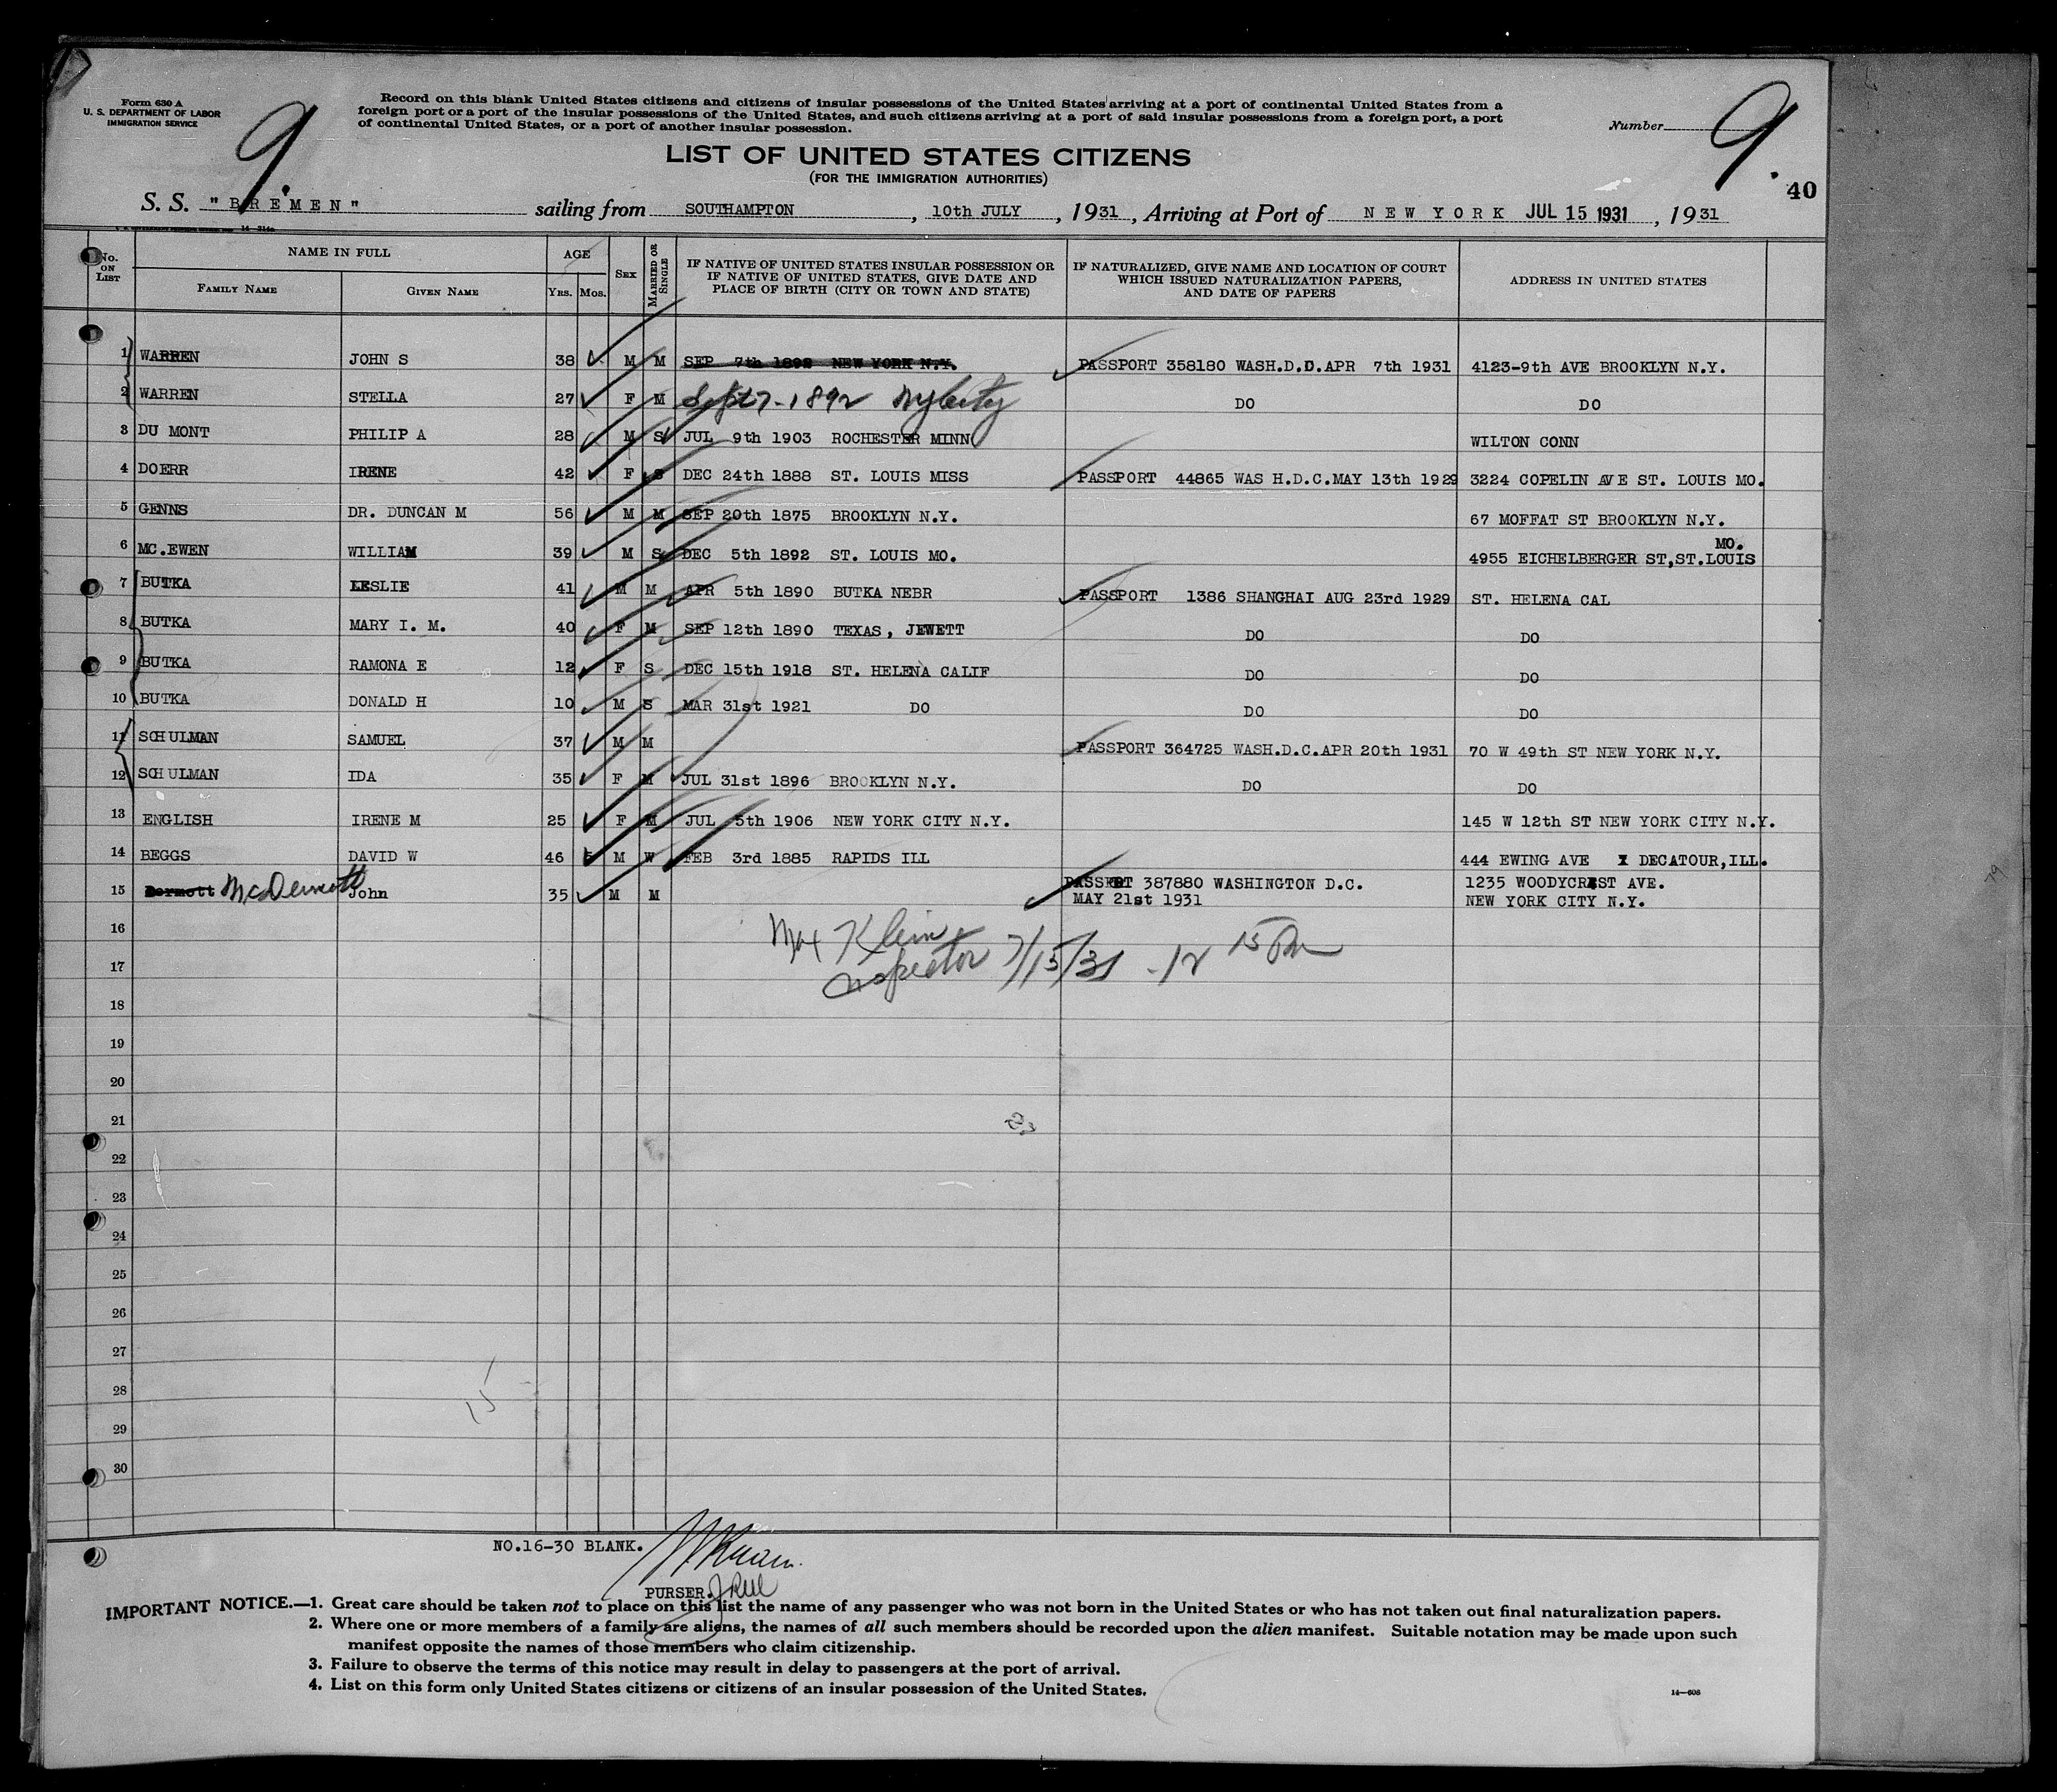 Form 630 A
U. S. DEPARTMENT OF LABOR
IMMIGRATION SERVICE
9.
Record on this blank United States citizens and citizens of insular possessions of the United States arriving at a port of continental United States from a
foreign port or a port of the insular possessions of the United States, and such citizens arriving at a port of said insular possessions from a foreign port, a port
of continental United States, or a port of another insular possession.
Number 9.
LIST OF UNITED STATES CITIZENS
(FOR THE IMMIGRATION AUTHORITIES)
40
S. S. "BREMEN" sailing from SOUTHAMPTON, 10th JULY, 1931, Arriving at Port of NEW YORK JUL 15 1931, 1931
No. on List NAME IN FULL Family Name Given Name AGE Yrs. Mos. Sex Married or Single IF NATIVE OF UNITED STATES INSULAR POSSESSION OR IF NATIVE OF UNITED STATES, GIVE DATE AND PLACE OF BIRTH (CITY OR TOWN AND STATE) IF NATURALIZED, GIVE NAME AND LOCATION OF COURT WHICH ISSUED NATURALIZATION PAPERS, AND DATE OF PAPERS ADDRESS IN UNITED STATES
1 WARREN JOHN S 38 M M SEP 7th 1892 NEW YORK N.Y. PASSPORT 358180 WASH.D.D.APR 7th 1931 4123-9th AVE BROOKLYN N.Y.
2 WARREN STELLA 27 F M Sept 7-1892 NYCity DO DO
3 DU MONT PHILIP A 28 M S JUL 9th 1903 ROCHESTER MINN WILTON CONN
4 DOERR IRENE 42 F S DEC 24th 1888 ST. LOUIS MISS PASSPORT 44865 WAS H.D.C.MAY 13th 1929 3224 COPELIN AVE ST. LOUIS MO.
5 GENNS DR. DUNCAN M 56 M M SEP 20th 1875 BROOKLYN N.Y. 67 MOFFAT ST BROOKLYN N.Y.
6 MC.EWEN WILLIAM 39 M S DEC 5th 1892 ST. LOUIS MO. 4955 EICHELBERGER ST,ST.LOUIS MO.
7 BUTKA LESLIE 41 M M APR 5th 1890 BUTKA NEBR PASSPORT 1386 SHANGHAI AUG 23rd 1929 ST. HELENA CAL
8 BUTKA MARY I. M. 40 F M SEP 12th 1890 TEXAS, JEWETT DO DO
9 BUTKA RAMONA E 12 F S DEC 15th 1918 ST. HELENA CALIF DO DO
10 BUTKA DONALD H 10 M S MAR 31st 1921 DO DO DO
11 SCHULMAN SAMUEL 37 M M PASSPORT 364725 WASH.D.C.APR 20th 1931 70 W 49th ST NEW YORK N.Y.
12 SCHULMAN IDA 35 F M JUL 31st 1896 BROOKLYN N.Y. DO DO
13 ENGLISH IRENE M 25 F M JUL 5th 1906 NEW YORK CITY N.Y. 145 W 12th ST NEW YORK CITY N.Y.
14 BEGGS DAVID W 46 M W FEB 3rd 1885 RAPIDS ILL 444 EWING AVE DECATOUR,ILL.
15 Dermott McDermott John 35 M M PASSPORT 387880 WASHINGTON D.C. 1235 WOODYCREST AVE.
MAY 21st 1931 NEW YORK CITY N.Y.
16 Max Klein
17 Inspector 7/15/31 - 12 15 Pm
18
19
20
21
22
23
24
25
26
27
28
15
29
30
NO.16-30 BLANK.
PURSER.
IMPORTANT NOTICE.—1. Great care should be taken not to place on this list the name of any passenger who was not born in the United States or who has not taken out final naturalization papers.
2. Where one or more members of a family are aliens, the names of all such members should be recorded upon the alien manifest. Suitable notation may be made upon such
manifest opposite the names of those members who claim citizenship.
3. Failure to observe the terms of this notice may result in delay to passengers at the port of arrival.
4. List on this form only United States citizens or citizens of an insular possession of the United States.
14—608